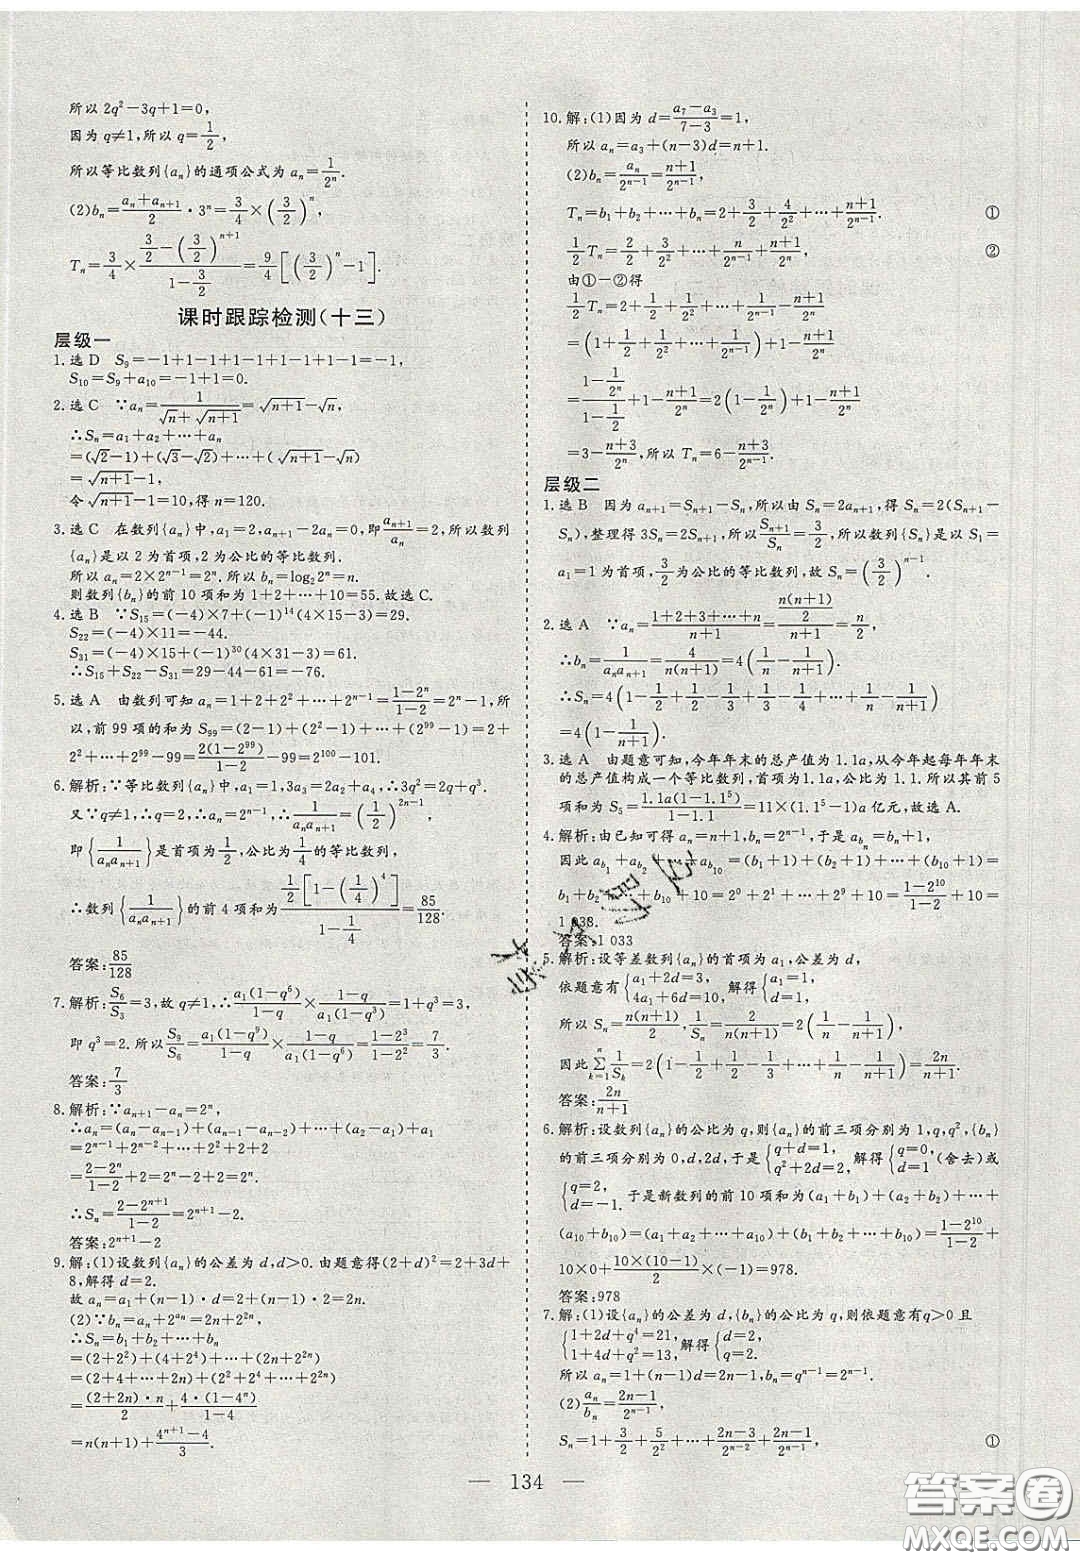 所以 2q²－3q＋1＝0,
因为 q≠1,所以 q＝1/2,
所以等比数列{aₙ}的通项公式为 aₙ＝1/2ⁿ.
(2)bₙ＝(aₙ＋aₙ₊₁)/2 · 3ⁿ＝3/4×(3/2)ⁿ,
Tₙ＝3/4×[3/2－(3/2)ⁿ⁺¹]/(1－3/2)＝9/4[(3/2)ⁿ－1].
课时跟踪检测(十三)
层级一
1.选 D　S₉＝－1＋1－1＋1－1＋1－1＋1－1＝－1,
S₁₀＝S₉＋a₁₀＝－1＋1＝0.
2.选 C　∵aₙ＝1/(√n＋√(n＋1))＝√(n＋1)－√n,
∴Sₙ＝a₁＋a₂＋…＋aₙ
＝(√2－1)＋(√3－√2)＋…＋(√(n＋1)－√n)
＝√(n＋1)－1,
令 √(n＋1)－1＝10,得 n＝120.
3.选 C　在数列{aₙ}中,a₁＝2,aₙ₊₁－2aₙ＝0,即aₙ₊₁/aₙ＝2,所以数列
{aₙ}是以 2 为首项,2 为公比的等比数列.
所以 aₙ＝2×2ⁿ⁻¹＝2ⁿ.所以 bₙ＝log₂2ⁿ＝n.
则数列{bₙ}的前 10 项和为 1＋2＋…＋10＝55.故选 C.
4.选 B　∵S₁₅＝(－4)×7＋(－1)¹⁴(4×15－3)＝29.
S₂₂＝(－4)×11＝－44.
S₃₁＝(－4)×15＋(－1)³⁰(4×31－3)＝61.
∴S₁₅＋S₂₂－S₃₁＝29－44－61＝－76.
5.选 A　由数列可知 aₙ＝1＋2＋2²＋…＋2ⁿ⁻¹＝(1－2ⁿ)/(1－2)＝2ⁿ－1,所
以,前 99 项的和为 S₉₉＝(2－1)＋(2²－1)＋…＋(2⁹⁹－1)＝2＋
2²＋…＋2⁹⁹－99＝2(1－2⁹⁹)/(1－2)－99＝2¹⁰⁰－101.
6.解析:∵等比数列{aₙ}中,a₁＝1,3a₃＝2a₂＋a₄,∴3q²＝2q＋q³.
又∵q≠1,∴q＝2,∴aₙ＝2ⁿ⁻¹,∴1/(aₙaₙ₊₁)＝(1/2)²ⁿ⁻¹,
即{1/(aₙaₙ₊₁)}是首项为1/2,公比为1/4的等比数列,
∴数列{1/(aₙaₙ₊₁)}的前 4 项和为 (1/2)[1－(1/4)⁴]/(1－1/4)＝85/128.
答案:85/128
7.解析:S₆/S₃＝3,故 q≠1,∴a₁(1－q⁶)/(1－q)×(1－q)/[a₁(1－q³)]＝1＋q³＝3,
即 q³＝2.所以S₉/S₆＝a₁(1－q⁹)/(1－q)×(1－q)/[a₁(1－q⁶)]＝(1－2³)/(1－2²)＝7/3.
答案:7/3
8.解析:∵aₙ₊₁－aₙ＝2ⁿ,
∴aₙ＝(aₙ－aₙ₋₁)＋(aₙ₋₁－aₙ₋₂)＋…＋(a₂－a₁)＋a₁
＝2ⁿ⁻¹＋2ⁿ⁻²＋…＋2²＋2＋2
＝(2－2ⁿ)/(1－2)＋2＝2ⁿ－2＋2＝2ⁿ.
∴Sₙ＝(2－2ⁿ⁺¹)/(1－2)＝2ⁿ⁺¹－2.
答案:2ⁿ⁺¹－2
9.解:(1)设数列{aₙ}的公差为 d,d>0.由题意得(2＋d)²＝2＋3d＋
8,解得 d＝2.
故 aₙ＝a₁＋(n－1)·d＝2＋(n－1)·2＝2n.
(2)∵bₙ＝aₙ＋2^(aₙ)＝2n＋2²ⁿ,
∴Sₙ＝b₁＋b₂＋…＋bₙ
＝(2＋2²)＋(4＋2⁴)＋…＋(2n＋2²ⁿ)
＝(2＋4＋…＋2n)＋(2²＋2⁴＋…＋2²ⁿ)
＝(2＋2n)·n/2＋4·(1－4ⁿ)/(1－4)
＝n(n＋1)＋(4ⁿ⁺¹－4)/3.
10.解:(1)因为 d＝(a₇－a₃)/(7－3)＝1,
所以 aₙ＝a₃＋(n－3)d＝n＋1.
(2)bₙ＝aₙ/2ⁿ⁻¹＝(n＋1)/2ⁿ⁻¹,
Tₙ＝b₁＋b₂＋…＋bₙ＝2＋3/2＋4/2²＋…＋(n＋1)/2ⁿ⁻¹. ①
1/2 Tₙ＝2/2＋3/2²＋…＋n/2ⁿ⁻¹＋(n＋1)/2ⁿ, ②
由①－②得
1/2 Tₙ＝2＋1/2＋1/2²＋…＋1/2ⁿ⁻¹－(n＋1)/2ⁿ
＝(1＋1/2＋1/2²＋…＋1/2ⁿ⁻¹)＋1－(n＋1)/2ⁿ
＝(1－1/2ⁿ)/(1－1/2)＋1－(n＋1)/2ⁿ＝2(1－1/2ⁿ)＋1－(n＋1)/2ⁿ
＝3－(n＋3)/2ⁿ,所以 Tₙ＝6－(n＋3)/2ⁿ⁻¹.
层级二
1.选 B　因为 aₙ₊₁＝Sₙ₊₁－Sₙ,所以由 Sₙ＝2aₙ₊₁,得 Sₙ＝2(Sₙ₊₁－
Sₙ),整理得 3Sₙ＝2Sₙ₊₁,所以Sₙ₊₁/Sₙ＝3/2,所以数列{Sₙ}是以 S₁＝
a₁＝1 为首项,3/2为公比的等比数列,故 Sₙ＝(3/2)ⁿ⁻¹.
2.选 A　∵aₙ＝(1＋2＋3＋…＋n)/(n＋1)＝[n(n＋1)/2]/(n＋1)＝n/2,
∴bₙ＝1/(aₙaₙ₊₁)＝4/[n(n＋1)]＝4(1/n－1/(n＋1)),
∴Sₙ＝4(1－1/2＋1/2－1/3＋1/3－1/4＋…＋1/n－1/(n＋1))
＝4(1－1/(n＋1)).
3.选 A　由题意可知,今年年末的总产值为 1.1a,从今年起每年年末
的总产值构成一个等比数列,首项为 1.1a,公比为 1.1.所以其前 5
项和为 S₅＝1.1a(1－1.1⁵)/(1－1.1)＝11×(1.1⁵－1)a 亿元,故选 A.
4.解析:由已知可得 aₙ＝n＋1,bₙ＝2ⁿ⁻¹,于是 a_(bₙ)＝bₙ＋1,
因此 a_(b₁)＋a_(b₂)＋…＋a_(b₁₀)＝(b₁＋1)＋(b₂＋1)＋…＋(b₁₀＋1)＝
b₁＋b₂＋…＋b₁₀＋10＝2⁰＋2¹＋…＋2⁹＋10＝(1－2¹⁰)/(1－2)＋10＝
1 033.
答案:1 033
5.解析:设等差数列{aₙ}的首项为 a₁,公差为 d,
依题意有{a₁＋2d＝3, 4a₁＋6d＝10, 解得{a₁＝1, d＝1,
所以 Sₙ＝n(n＋1)/2,1/Sₙ＝2/[n(n＋1)]＝2(1/n－1/(n＋1)),
因此 ∑ₖ₌₁ⁿ 1/Sₖ＝2(1－1/2＋1/2－1/3＋…＋1/n－1/(n＋1))＝2n/(n＋1).
答案:2n/(n＋1)
6.解析:设数列{aₙ}的公比为 q,则{aₙ}的前三项分别为 1,q,q²,{bₙ}
的前三项分别为 0,d,2d,于是{q＋d＝1, q²＋2d＝2, 解得{q＝0, d＝1 (舍去)或
{q＝2, d＝－1. 于是新数列的前 10 项和为(a₁＋b₁)＋(a₂＋b₂)＋…＋
(a₁₀＋b₁₀)＝(a₁＋a₂＋…＋a₁₀)＋(b₁＋b₂＋…＋b₁₀)＝(1－2¹⁰)/(1－2)＋
10×0＋10×(10－1)/2×(－1)＝978.
答案:978
7.解:(1)设{aₙ}的公差为 d,{bₙ}的公比为 q,则依题意有q>0 且
{1＋2d＋q⁴＝21, 1＋4d＋q²＝13, 解得{d＝2, q＝2.
所以 aₙ＝1＋(n－1)d＝2n－1,bₙ＝qⁿ⁻¹＝2ⁿ⁻¹.
(2)aₙ/bₙ＝(2n－1)/2ⁿ⁻¹,
Sₙ＝1＋3/2¹＋5/2²＋…＋(2n－3)/2ⁿ⁻²＋(2n－1)/2ⁿ⁻¹, ①
— 134 —
答案圈
MXQE.COM